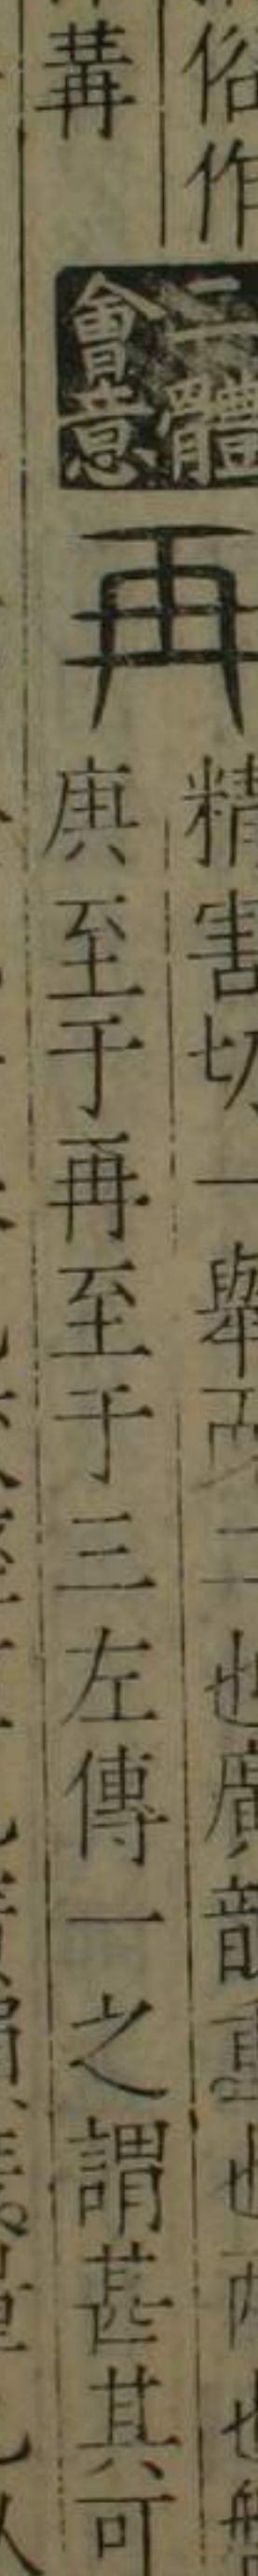 俗作
冓
二體
會意
再
精害切一舉而二也廣韻重也兩也盤
庚至于再至于三左傳一之謂甚其可